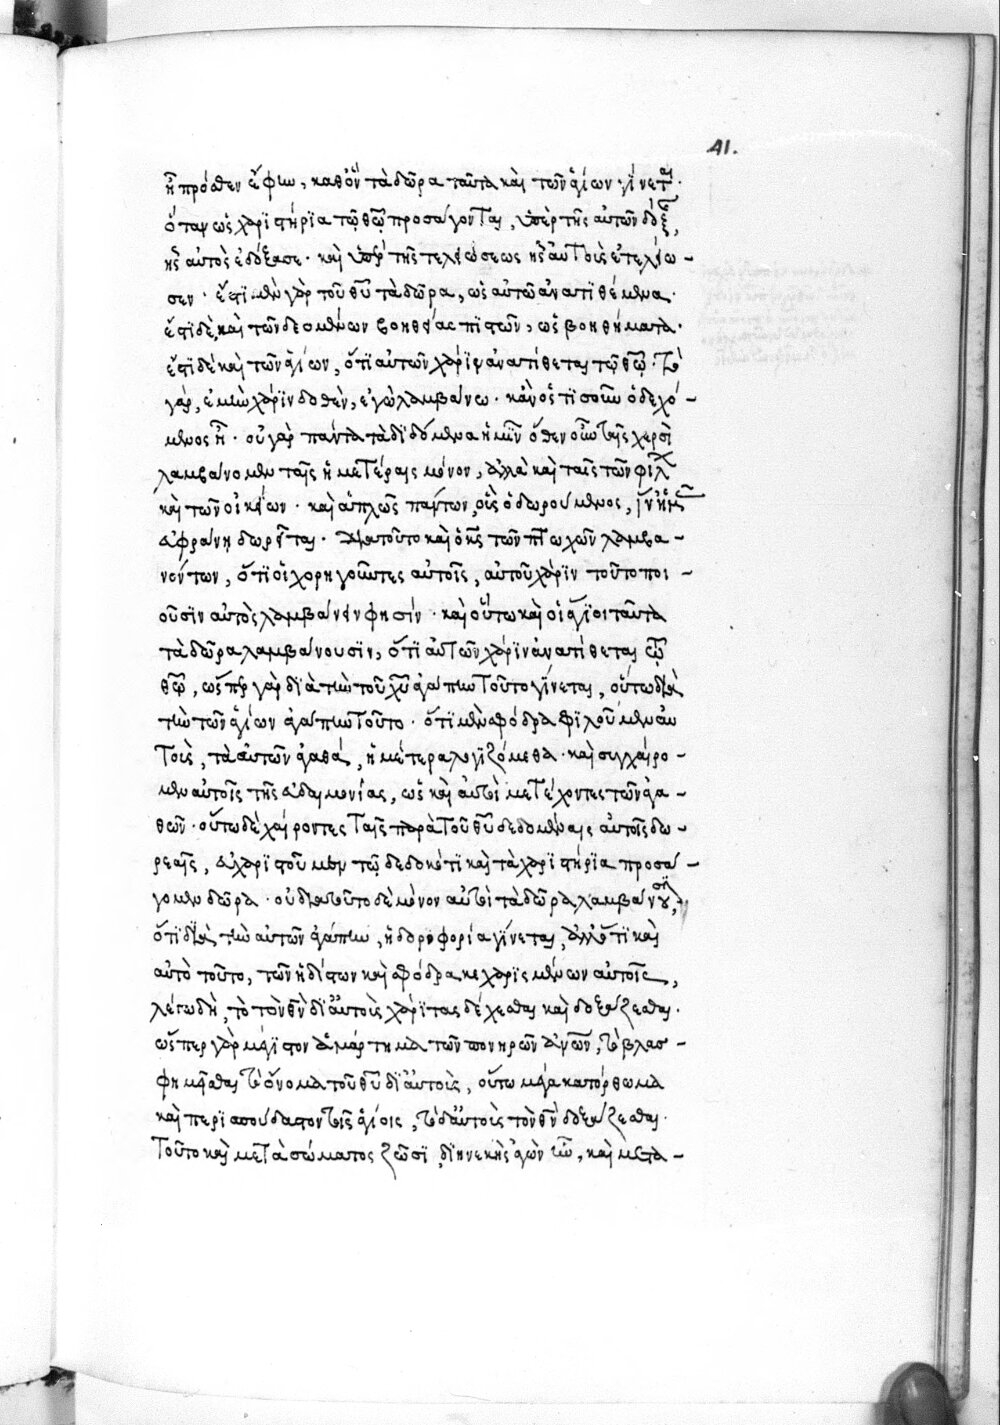 41.
ἢ πρόσθεν ἔφην, καθ' ὃν τὰ δῶρα ταῦτα καὶ τῶν ἁγίων γίνεται·
ὅταν ὡς χαριστήρια τῷ θῷ προσάγονται, ὑπὲρ τῆς αὐτῶν δόξης,
ἧς αὐτὸς ἐδόξασε· καὶ ὑπὲρ τῆς τελειώσεως ἧς αὐτοὺς ἐτελείω-
σεν· ἔστι μὲν γὰρ τοῦ θυ τὰ δῶρα, ὡς αὐτῷ ἀνατιθέμενα·
ἔστι δὲ, καὶ τῶν δεομένων βοηθείας πιστῶν, ὡς βοηθήματα·
ἔστι δὲ καὶ τῶν ἁγίων, ὅτι αὐτῶν χάριν ἀνατίθεται τῷ θῷ· τὸ
γὰρ, ἐμὴν χάριν δοθὲν, ἐγὼ λαμβάνω· κἂν ὅστισοῦν ὁ δεχό-
μενος ἦ· οὐ γὰρ πάντα τὰ διδόμενα ἡμῖν ταῖς χερσὶ
λαμβάνομεν ταῖς ἡμετέραις μόνον, ἀλλὰ καὶ ταῖς τῶν φίλων
καὶ τῶν οἰκείων· καὶ ἁπλῶς πάντων, οἷς ὁ δωρούμενος,
δωρεῖται· διατοῦτο καὶ ὁ χς τῶν πτωχῶν λαμβα-
νόντων, ὅτι οἱ χορηγοῦντες αὐτοῖς, αὐτοῦ χάριν τοῦτο ποι-
οῦσιν αὐτὸς λαμβάνειν φησίν· καὶ οὕτω καὶ οἱ ἅγιοι ταῦτα
τὰ δῶρα λαμβάνουσιν, ὅτι αὐτῶν χάριν ἀνατίθεται τῷ
θῷ, ὥσπερ γὰρ διὰ τὴν τοῦ χυ ἀγάπην τοῦτο γίνεται, οὕτω διὰ
τὴν τῶν ἁγίων ἀγάπην τοῦτο· ὅτι μὲν σφόδρα φιλοῦμεν αὐ
τοὺς, τὰ αὐτῶν ἀγαθά, ἡμέτερα λογιζόμεθα· καὶ συγχαίρο-
μεν αὐτοῖς τῆς εὐδαιμονίας, ὡς καὶ αὐτοὶ μετέχοντες τῶν ἀγα-
θῶν· οὕτω δὲ χαίροντες ταῖς παρὰ τοῦ θυ δεδομέναις αὐτοῖς δω-
ρεαῖς, εὐχαριστοῦμεν τῷ δεδοκότι καὶ τὰ χαριστήρια προσά-
γομεν δῶρα· οὐ διατοῦτο δὲ μόνον αὐτοὶ τὰ δῶρα λαμβάνουσιν,
ὅτι διὰ τὴν αὐτῶν ἀγάπην, ἡ δωροφορία γίνεται, ἀλλ' ὅτι καὶ
αὐτὸ τοῦτο, τῶν ἡδίστων καὶ σφόδρα κεχαρισμένων αὐτοῖς,
λέγω δὴ, τὸ τὸν θν δι' αὐτοὺς χάριτας δέχεσθαι καὶ δοξάζεσθαι·
ὥσπερ γὰρ μέγιστον ἁμάρτημα τῶν πονηρῶν ἀνων, τὸ βλασ-
φημεῖσθαι τὸ ὄνομα τοῦ θυ δι' αὐτοὺς, οὕτω μέγα κατόρθωμα
καὶ περισπούδαστον τοῖς ἁγίοις, τὸ δι' αὐτοὺς τὸν θν δοξάζεσθαι·
τοῦτο καὶ μετὰ σώματος ζῶσι, διηνεκὴς ἀγὼν ἦν, καὶ μετα-